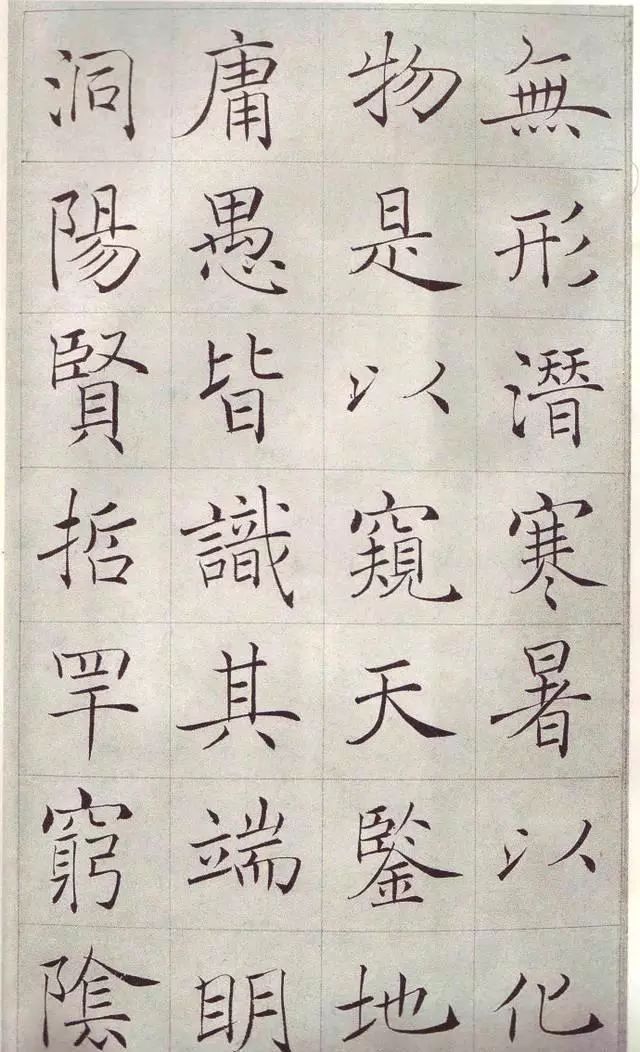 無形潛寒暑以化
物是以窺天鑒地
庸愚皆識其端明
陽洞陰賢哲罕窮